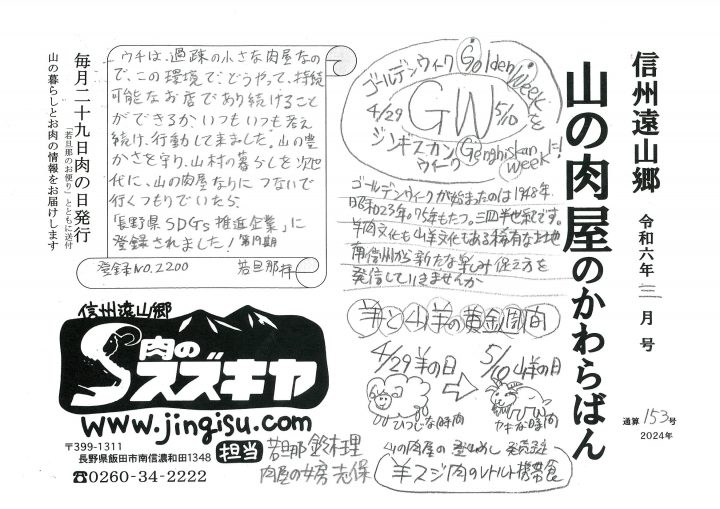 信州遠山郷
山の肉屋のかわらばん
令和六年三月号
通算153号
2024年
ゴールデンウィーク Golden Weekを
4/29 GW 5/10
ジンギスカン Genghiskan
ウィーク Weekに!
ゴールデンウィークが始まったのは1948年
昭和23年。75年もたつ。三四半世紀です。
羊肉文化も山羊文化もある稀有な土地
南信州から新たな楽しみ捉え方を
発信していきませんか
羊と山羊の黄金週間
4/29 羊の日
5/10 山羊の日
ひつじな時間
ヤギな時間
山の肉屋の登山めし 発売予定
羊スジ肉のレトルト携帯食
ウチは、過疎の小さな肉屋なの
で、この環境で、どうやって、持続
可能なお店であり続けること
ができるか、いつもいつも考え
続け、行動して来ました。山の豊
かさを守り、山村の暮らしを次世
代に、山の肉屋なりにつないで
行くつもりでいたら
「長野県SDGs推進企業」に
登録されました! 第19期
登録NO.2200 若旦那拝
毎月二十九日肉の日発行
「若旦那のお便り」とともに送付
山の暮らしとお肉の情報をお届けします
信州遠山郷
肉の
スズキヤ
www.jingisu.com
〒399-1311
長野県飯田市南信濃和田1348
☎0260-34-2222
担当 若旦那 鈴木理
肉屋の女房 志保